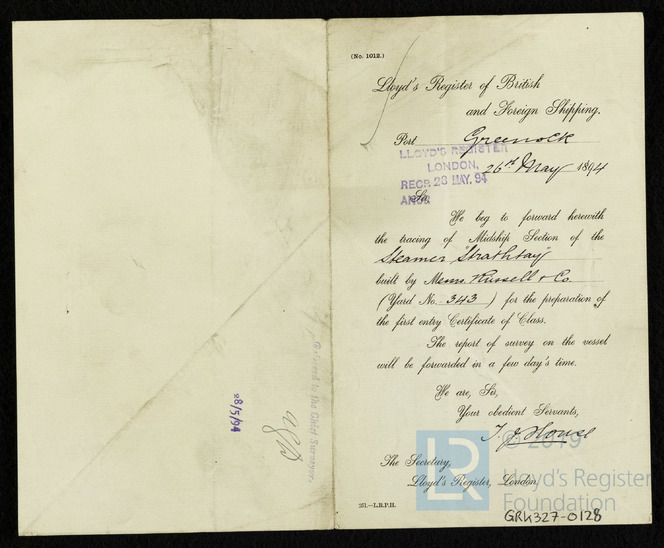 (No. 1012.)
Lloyd's Register of British
and Foreign Shipping.
Port Greenock
LLOYD'S REGISTER
LONDON,
RECD. 28 MAY. 94
ANSD
26th May 1894
Sir,
We beg to forward herewith
the tracing of Midship Section of the
Steamer "Strathtay"
built by Messrs. Russell & Co.
(Yard No. 343) for the preparation of
the first entry Certificate of Class.
The report of survey on the vessel
will be forwarded in a few day's time.
We are, Sir,
Your obedient Servants,
The Secretary,
Lloyd's Register, London.
251.—L.R.P.H.
GRK327-0128
Referred to the Chief Surveyor.
28/5/94
LR
© 2019
Lloyd's Register
Foundation